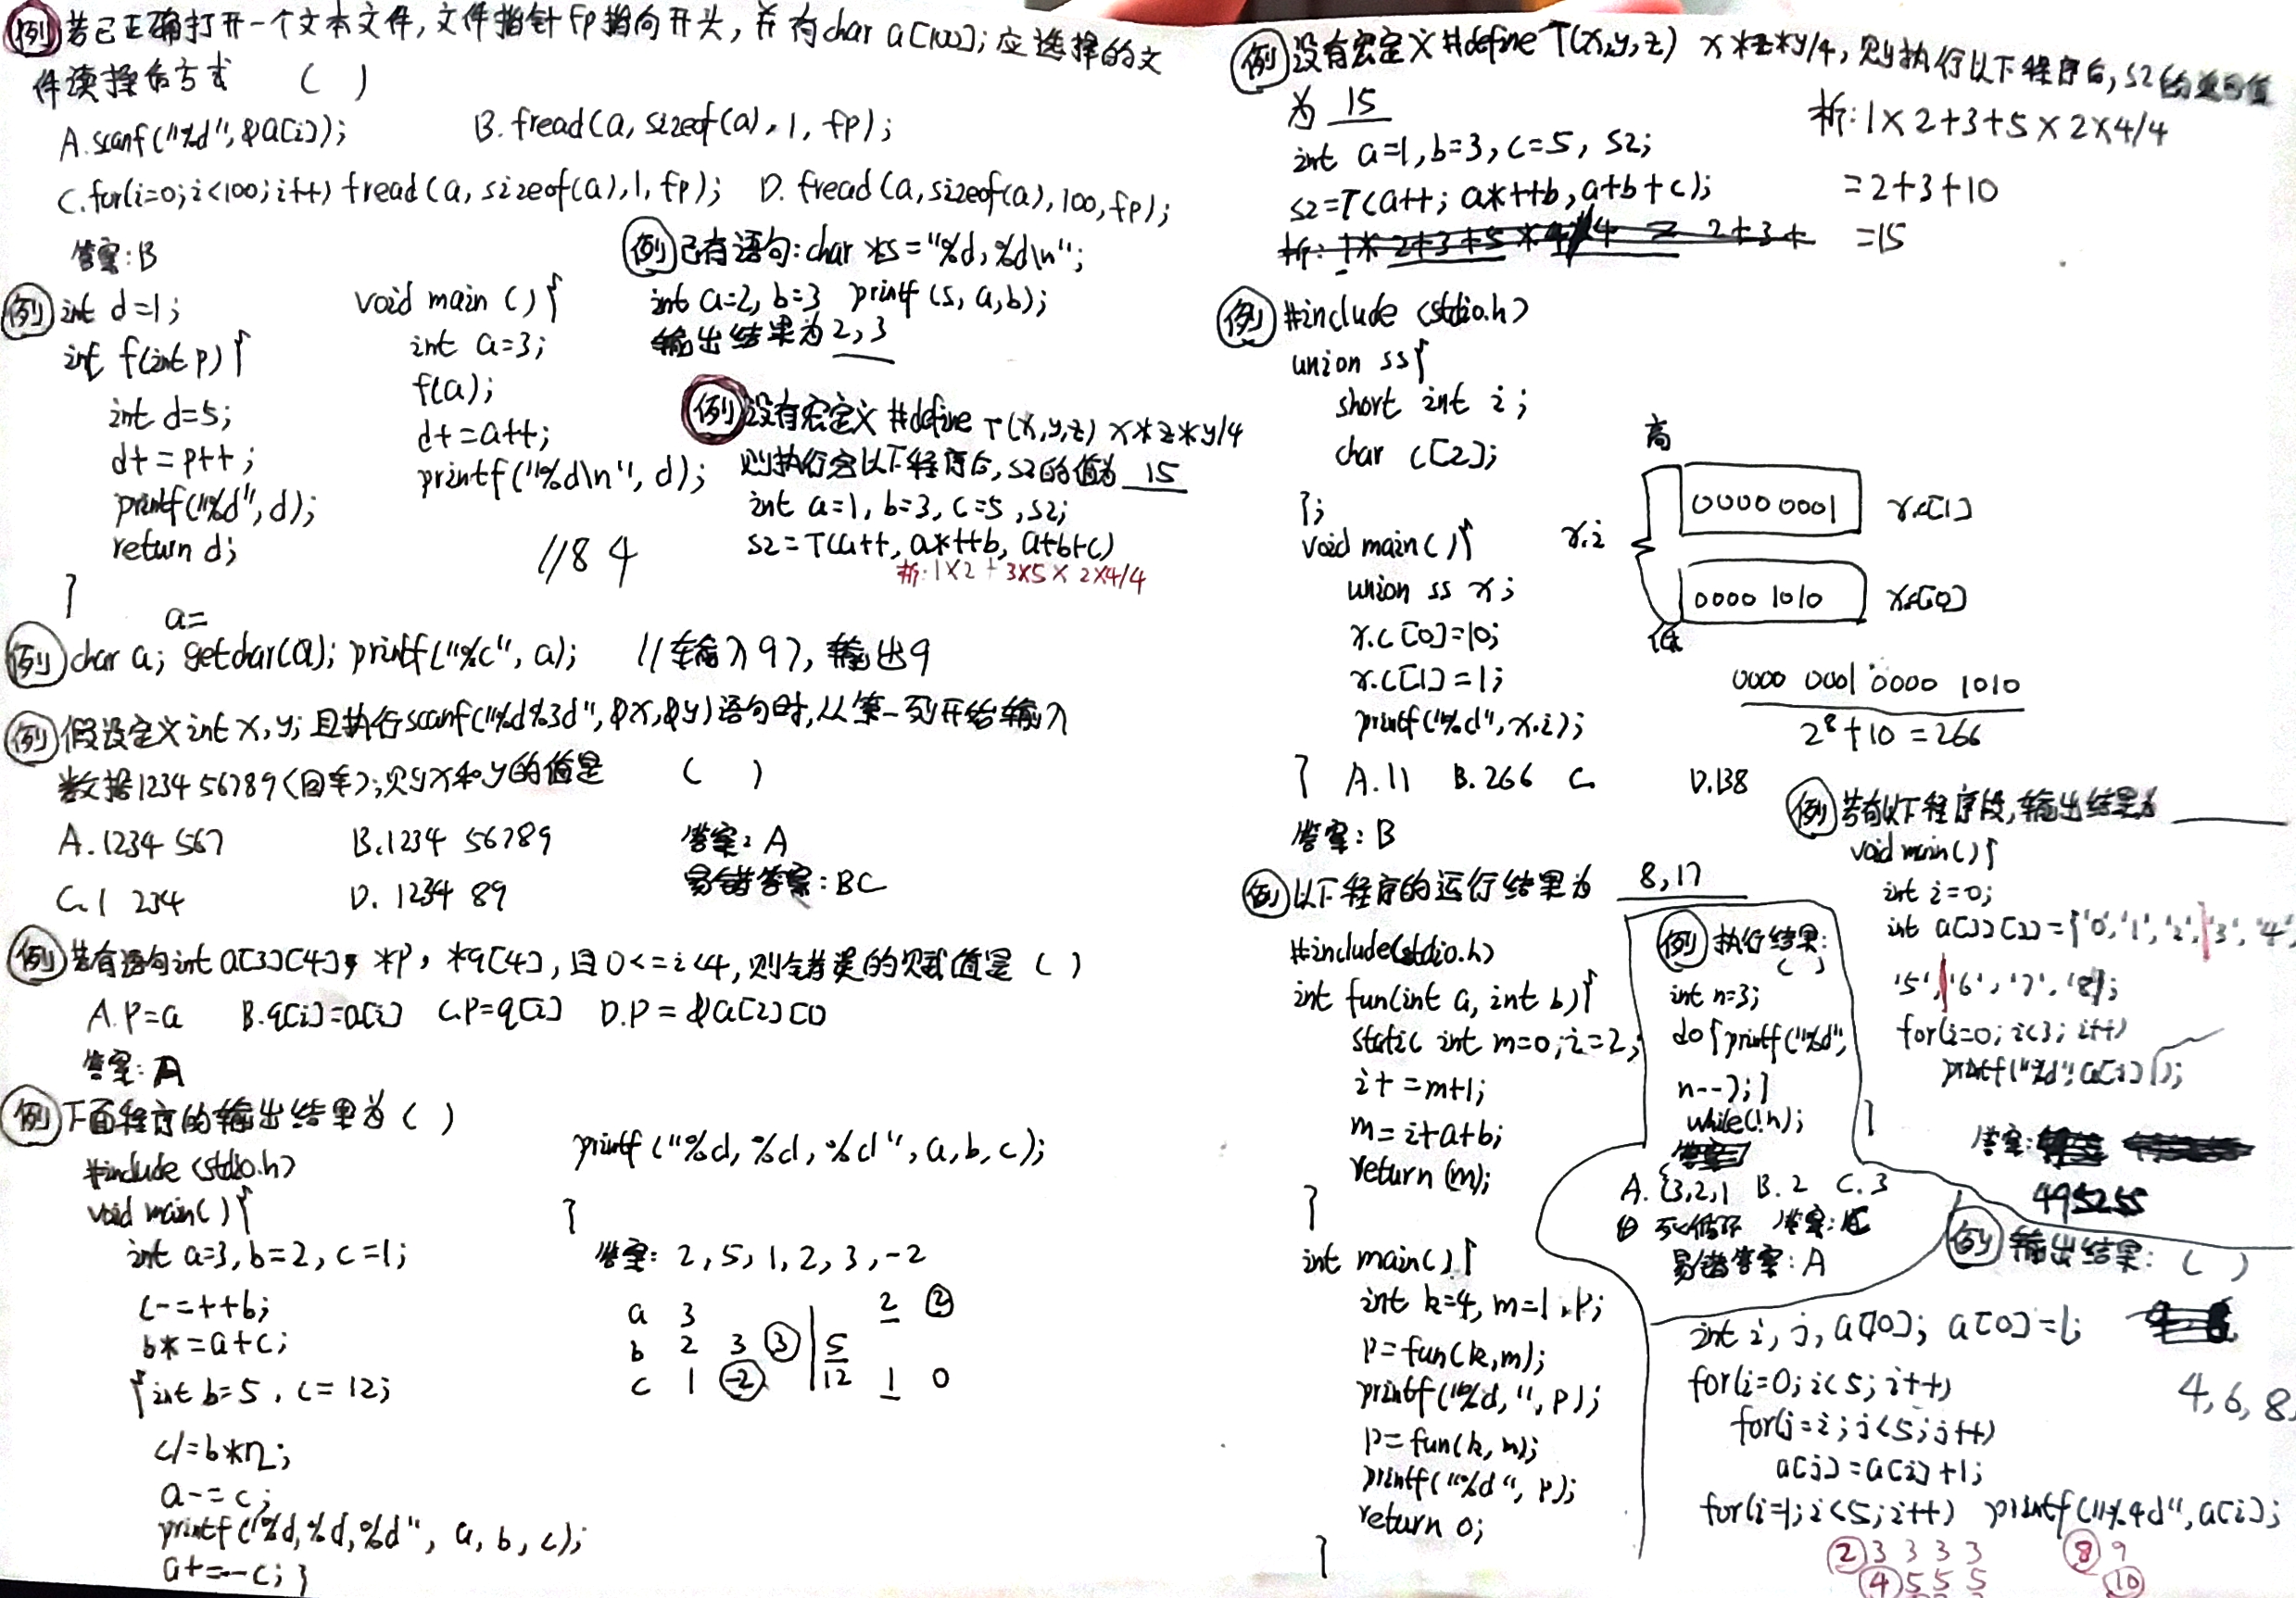 例 若已正确打开一个文本文件,文件指针fp指向开头,并有char a[100];应选择的文
件读操作方式 ( )
A.scanf("%d",&a[i]); B.fread(a, sizeof(a),1,fp);
C.for(i=0;i<100;i++) fread(a, sizeof(a),1,fp); D.fread(a,sizeof(a),100,fp);
答案:B
例 已有语句:char *s="%d,%d\n";
int a=2, b=3 printf(s,a,b);
输出结果为 2,3
例 int d=1;
int f(int p){
int d=5;
d+=p++;
printf("%d",d);
return d;
}
void main(){
int a=3;
f(a);
d+=a++;
printf("%d\n", d);
//8 4
例 设有宏定义 #define T(x,y,z) x*z*y/4
则执行完以下程序后,s2的值为 15
int a=1, b=3, c=5, s2;
s2=T(a++, a*++b, a+b+c)
析:1×2+3×5×2×4/4
a=
例 char a; getchar(a); printf("%c", a); //输入97,输出9
例 假设定义int x,y;且执行scanf("%d%3d",&x,&y)语句时,从第一列开始输入
数据1234 56789(回车);则x和y的值是 ( )
A.1234 567 B.1234 56789
C.1 234 D.1234 89
答案:A
易错答案:BC
例 若有语句int a[3][4], *p, *q[4],且0<=i<4,则错误的赋值是 ( )
A.p=a B.q[i]=a[i] C.p=q[i] D.p=&a[2][0]
答案:A
例 下面程序的输出结果为 ( )
#include <stdio.h>
void main(){
int a=3, b=2, c=1;
c-=++b;
b*=a+c;
{int b=5, c=12;
c/=b*2;
a-=c;
printf("%d,%d,%d", a, b, c);
a+=--c;}
printf("%d,%d,%d", a,b,c);
}
答案: 2, 5, 1, 2, 3, -2
a 3 2 2
b 2 3 3 5
c 1 -2 12 1 0
例 设有宏定义 #define T(x,y,z) x*z*y/4,则执行以下程序后,s2
为 15
int a=1,b=3,c=5, s2;
s2=T(a++; a*++b, a+b+c);
析:1×2+3+5×2×4/4
=2+3+10
=15
例 #include <stdio.h>
union ss{
short int i;
char c[2];
};
void main(){
union ss x;
x.c[0]=10;
x.c[1]=1;
printf("%d",x.i);
}
高
0000 0001 x.c[1]
x.i
0000 1010 x.c[0]
低
0000 0001 0000 1010
2⁸+10=266
A.11 B.266 C. D.138
答案:B
例 以下程序的运行结果为 8,17
#include<stdio.h>
int fun(int a, int b){
static int m=0,i=2;
i+=m+1;
m=i+a+b;
return (m);
}
int main(){
int k=4, m=1,p;
p=fun(k,m);
printf("%d,", p);
p=fun(k, m);
printf("%d", p);
return 0;
}
例 执行结果:
( )
int n=3;
do{printf("%d",
n--);}
while(!n);
A.3,2,1 B.2 C.3
D 死循环 答案:C
易错答案:A
例 若有以下程序段,输出结果为
void main(){
int i=0;
int a[3][3]={'0','1','2','3','4',
'5','6','7','8'};
for(i=0;i<3;i++)
printf("%d",a[i][i]);
}
答案:
495255
例 输出结果: ( )
int i, j, a[10]; a[0]=1;
for(i=0;i<5;i++)
for(j=i;j<5;j++)
a[j]=a[i]+1;
for(i=1;i<5;i++) printf("%4d",a[i]);
4,6,8,
2 3 3 3 3 8 9
4 5 5 5 10